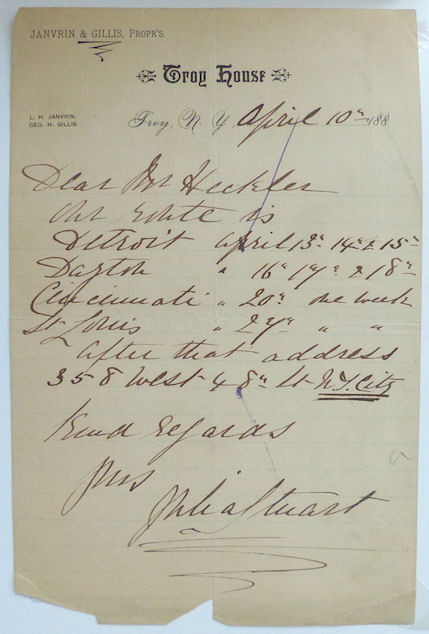 JANVRIN & GILLIS, PROPR'S.
Troy House
L. H. JANVRIN.
GEO. H. GILLIS.
Troy, N. Y. April 10th 188
Dear Mr Heckler
Our route is
Detroit April 13th 14th & 15th
Dayton " 16th 17th & 18th
Cincinnati " 20th one week
St Louis " 27th " "
After that address
358 West 48th St N.Y. City
Kind regards
Yrs
Julia Stuart